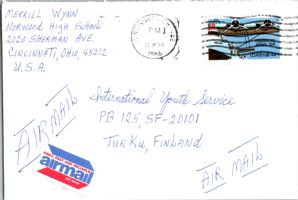 MERRILL WYNN
NORWOOD HIGH SCHOOL
2020 SHERMAN AVE.
CINCINNATI, OHIO, 45212
U.S.A.
PM
AIR MAIL
International Youth Service
PB 125, SF-20101
TURKU, FINLAND
airmail
AIR MAIL